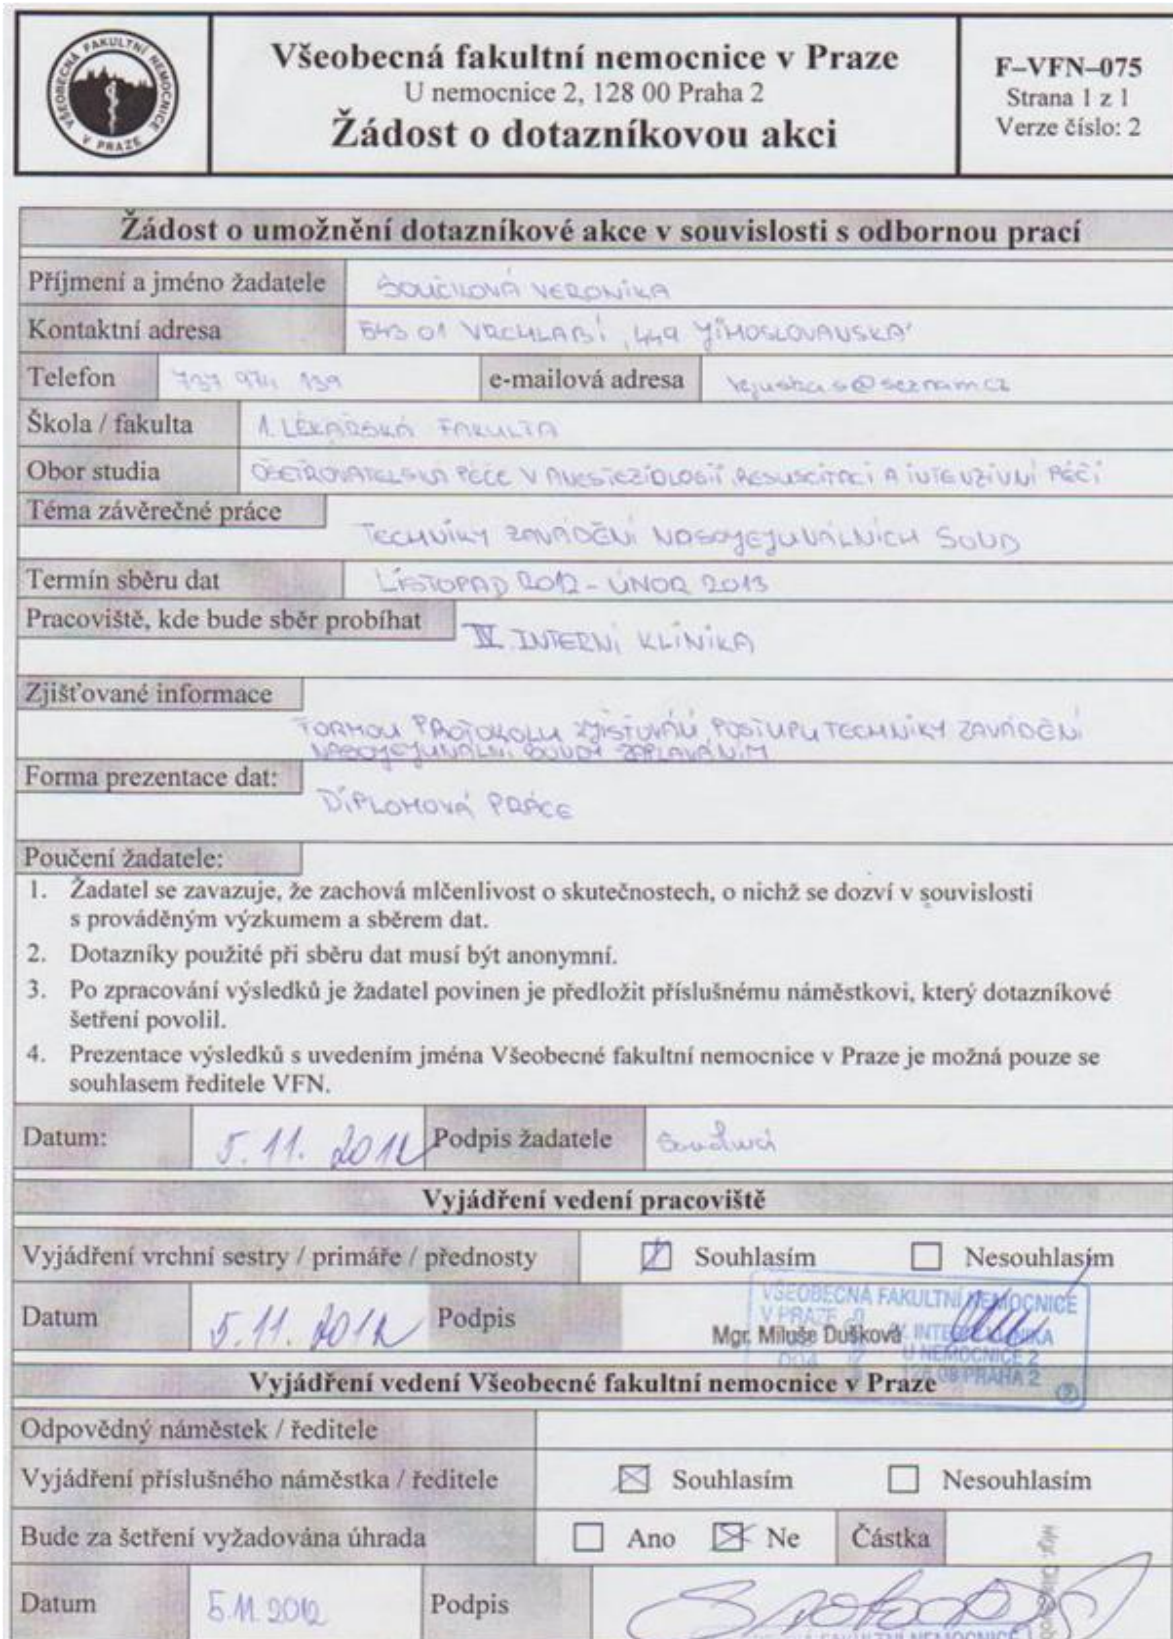 VŠEOBECNÁ FAKULTNÍ NEMOCNICE V PRAZE
Všeobecná fakultní nemocnice v Praze
U nemocnice 2, 128 00 Praha 2
Žádost o dotazníkovou akci
F–VFN–075
Strana 1 z 1
Verze číslo: 2
Žádost o umožnění dotazníkové akce v souvislosti s odbornou prací
Příjmení a jméno žadatele SOUČKOVÁ VERONIKA
Kontaktní adresa 543 01 VRCHLABÍ, 449 JIHOSLOVANSKÁ
Telefon 737 974 139 e-mailová adresa @seznam.cz
Škola / fakulta 1. LÉKAŘSKÁ FAKULTA
Obor studia OŠETŘOVATELSKÁ PÉČE V ANESTEZIOLOGII, RESUSCITACI A INTENZIVNÍ PÉČI
Téma závěrečné práce
TECHNIKY ZAVÁDĚNÍ NASOJEJUNÁLNÍCH SOND
Termín sběru dat LISTOPAD 2012 - ÚNOR 2013
Pracoviště, kde bude sběr probíhat
IV. INTERNÍ KLINIKA
Zjišťované informace
FORMOU PROTOKOLU ZJIŠŤOVÁNÍ POSTUPU TECHNIKY ZAVÁDĚNÍ
NASOJEJUNÁLNÍ SONDY ZAPLAVÁNÍM
Forma prezentace dat:
DIPLOMOVÁ PRÁCE
Poučení žadatele:
1. Žadatel se zavazuje, že zachová mlčenlivost o skutečnostech, o nichž se dozví v souvislosti
s prováděným výzkumem a sběrem dat.
2. Dotazníky použité při sběru dat musí být anonymní.
3. Po zpracování výsledků je žadatel povinen je předložit příslušnému náměstkovi, který dotazníkové
šetření povolil.
4. Prezentace výsledků s uvedením jména Všeobecné fakultní nemocnice v Praze je možná pouze se
souhlasem ředitele VFN.
Datum: 5. 11. 2012 Podpis žadatele
Vyjádření vedení pracoviště
Vyjádření vrchní sestry / primáře / přednosty Souhlasím Nesouhlasím
VŠEOBECNÁ FAKULTNÍ NEMOCNICE
V PRAZE
Datum 5. 11. 2012 Podpis Mgr. Miluše Dušková
U NEMOCNICE 2
PRAHA 2
Vyjádření vedení Všeobecné fakultní nemocnice v Praze
Odpovědný náměstek / ředitele
Vyjádření příslušného náměstka / ředitele Souhlasím Nesouhlasím
Bude za šetření vyžadována úhrada Ano Ne Částka
Datum 5.11.2012 Podpis
FAKULTNÍ NEMOCNICE